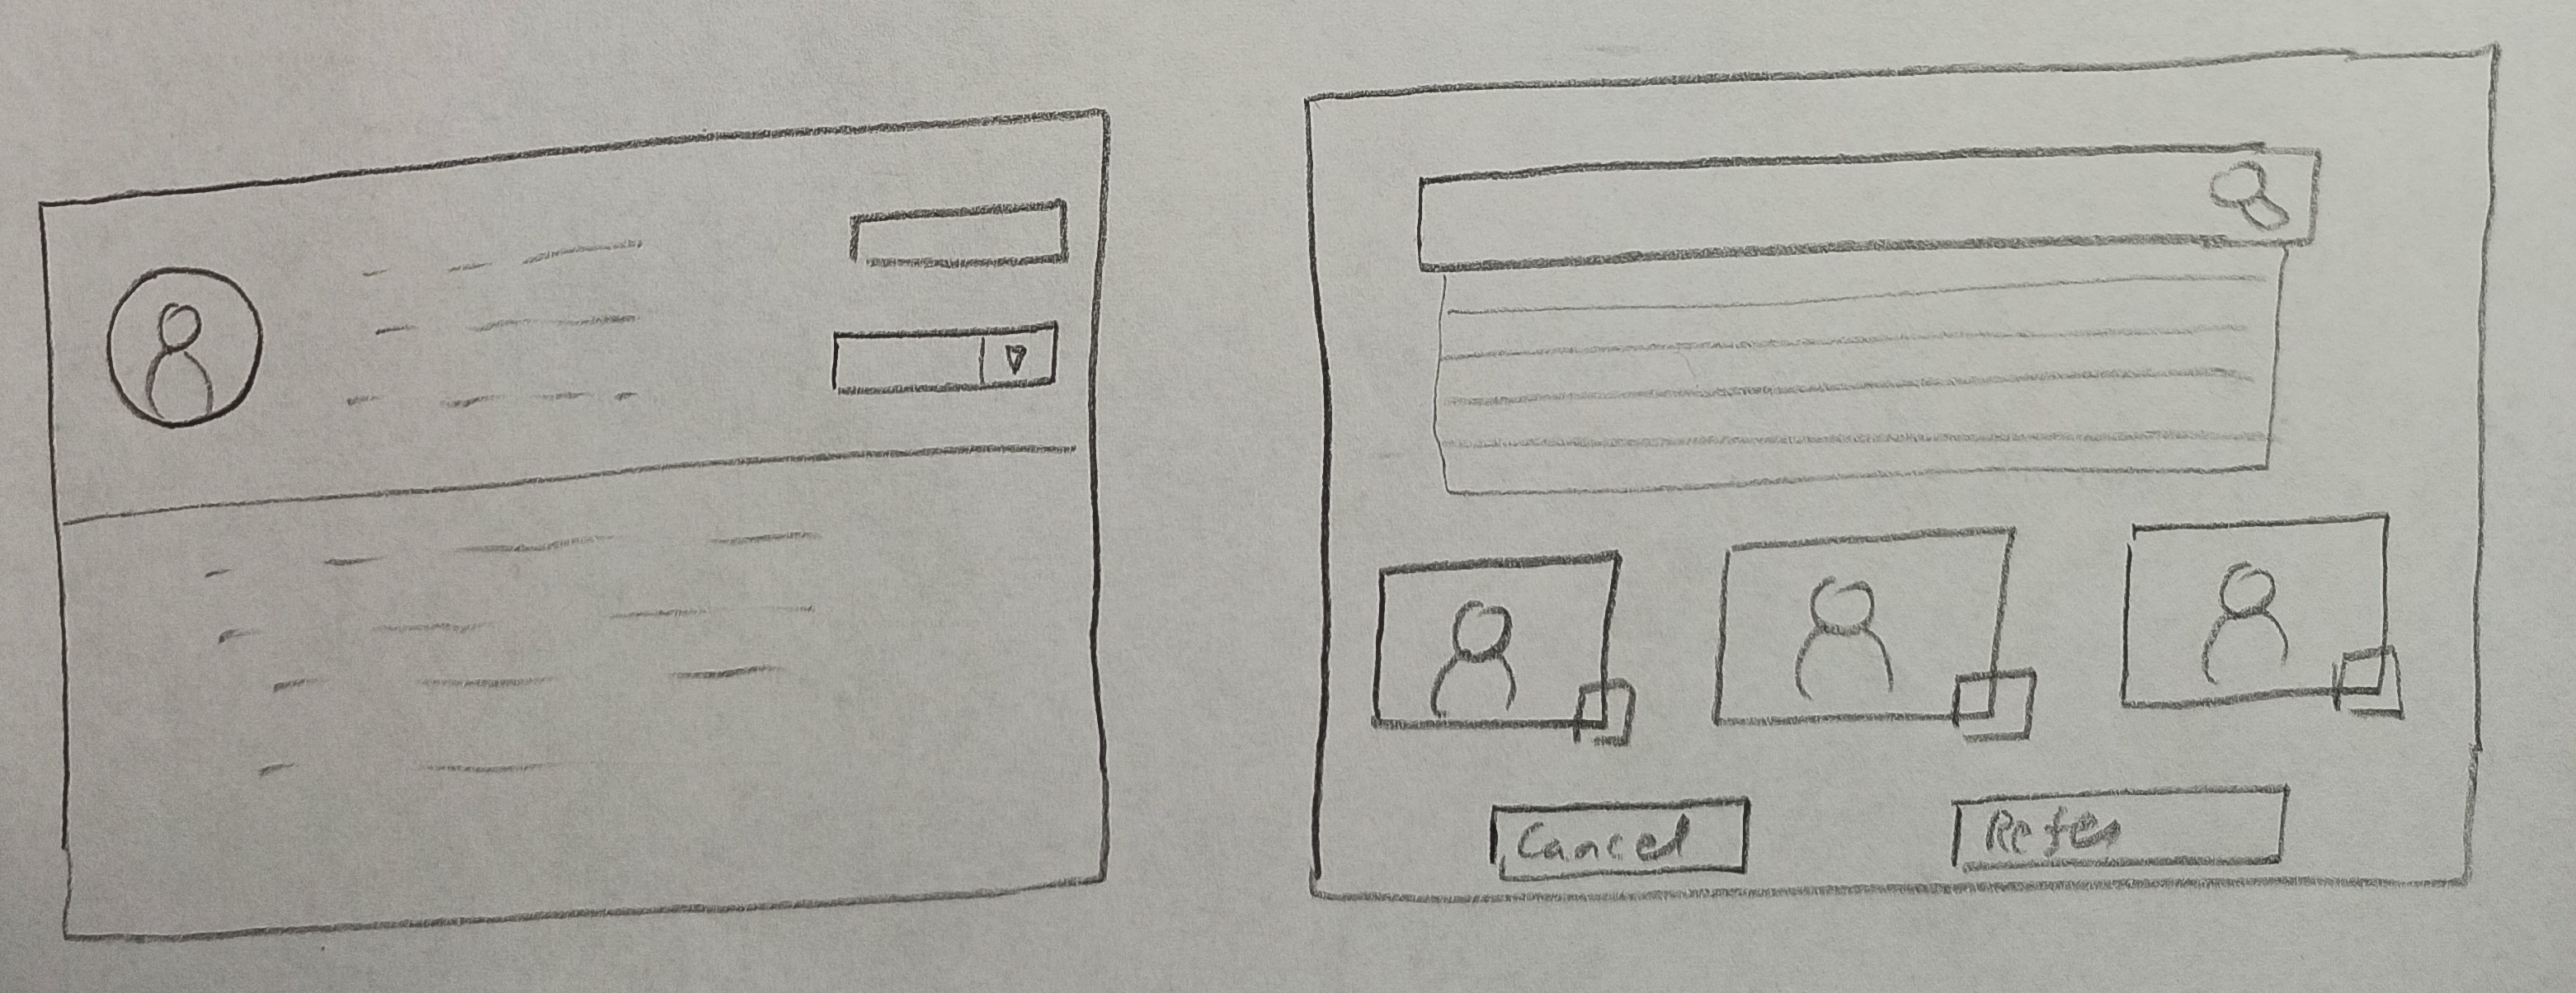 Cancel
Refer